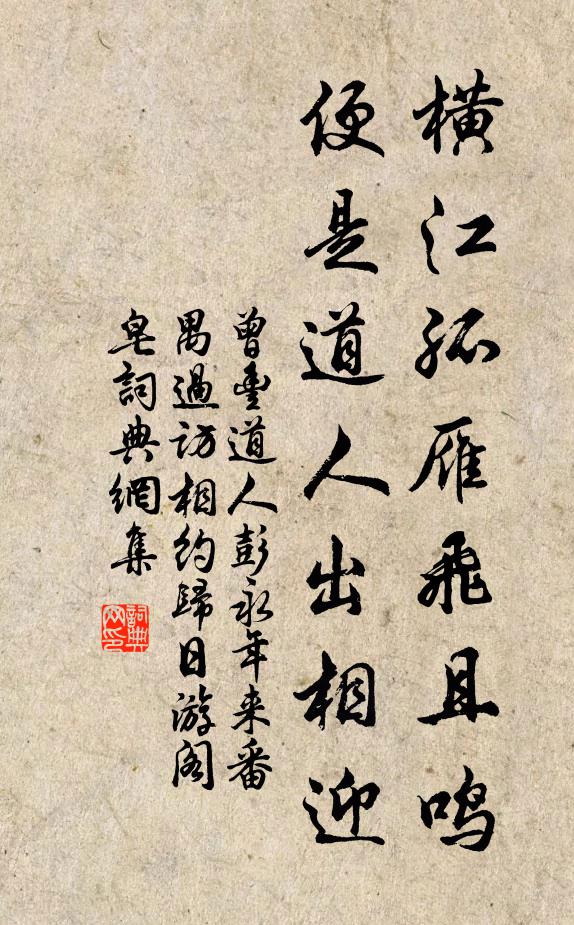 橫江孤雁飛且鸣
便是道人出相迎
曾豊道人彭永年来番
禺過访相約歸日游阁
皂詞典網集
詞典
网印